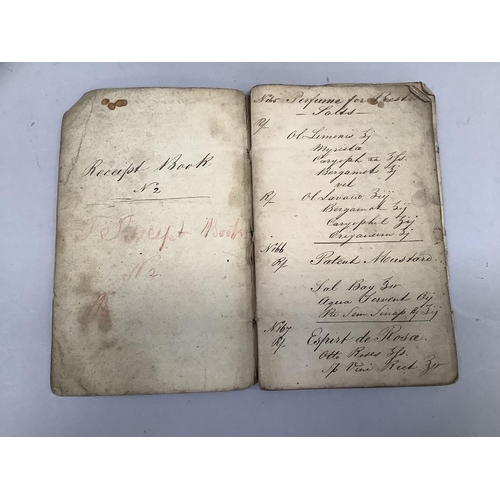 Receipt Book
N 2
Receipt Book
N 2
Perfume for
Salts
Rx
Ol Limonis ʒj
Myrista
Caryoph aa ʒſs.
Bergamot ʒj
vel
Rx Ol Lavand ʒiij
Bergamot ʒij
Caryophil ʒij
Origanum ʒj
No 166
Rx Patent Mustard.
Sal Bay
Aqua Fervent
Sem Sinap
No 167
Rx Espirt de Rosæ.
Otto Roses ʒſs.
Sp Vini Rect